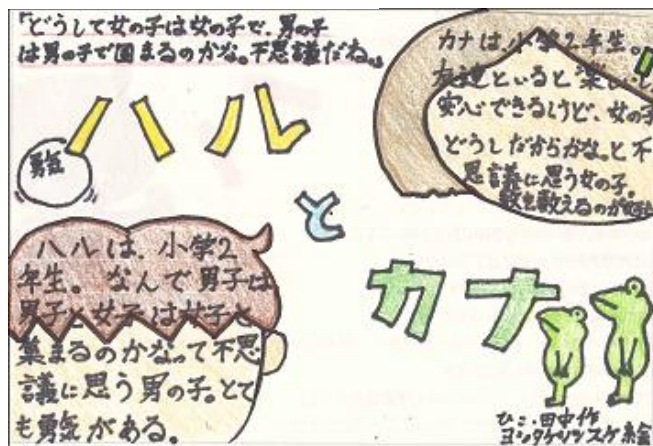 「どうして女の子は女の子で、男の子
は男の子で固まるのかな。不思議だね。」
ハルとカナ
勇気
カナは、小学2年生。
友達といると楽しいし
安心できるけど、女の子
どうしだからかな。と不
思議に思う女の子。
数を数えるのが好き
ハルは、小学2
年生。なんで男子は
男子と女子は女子と
集まるのかなって不思
議に思う男の子。とて
も勇気がある。
ひこ・田中作
ヨシタケシンスケ絵